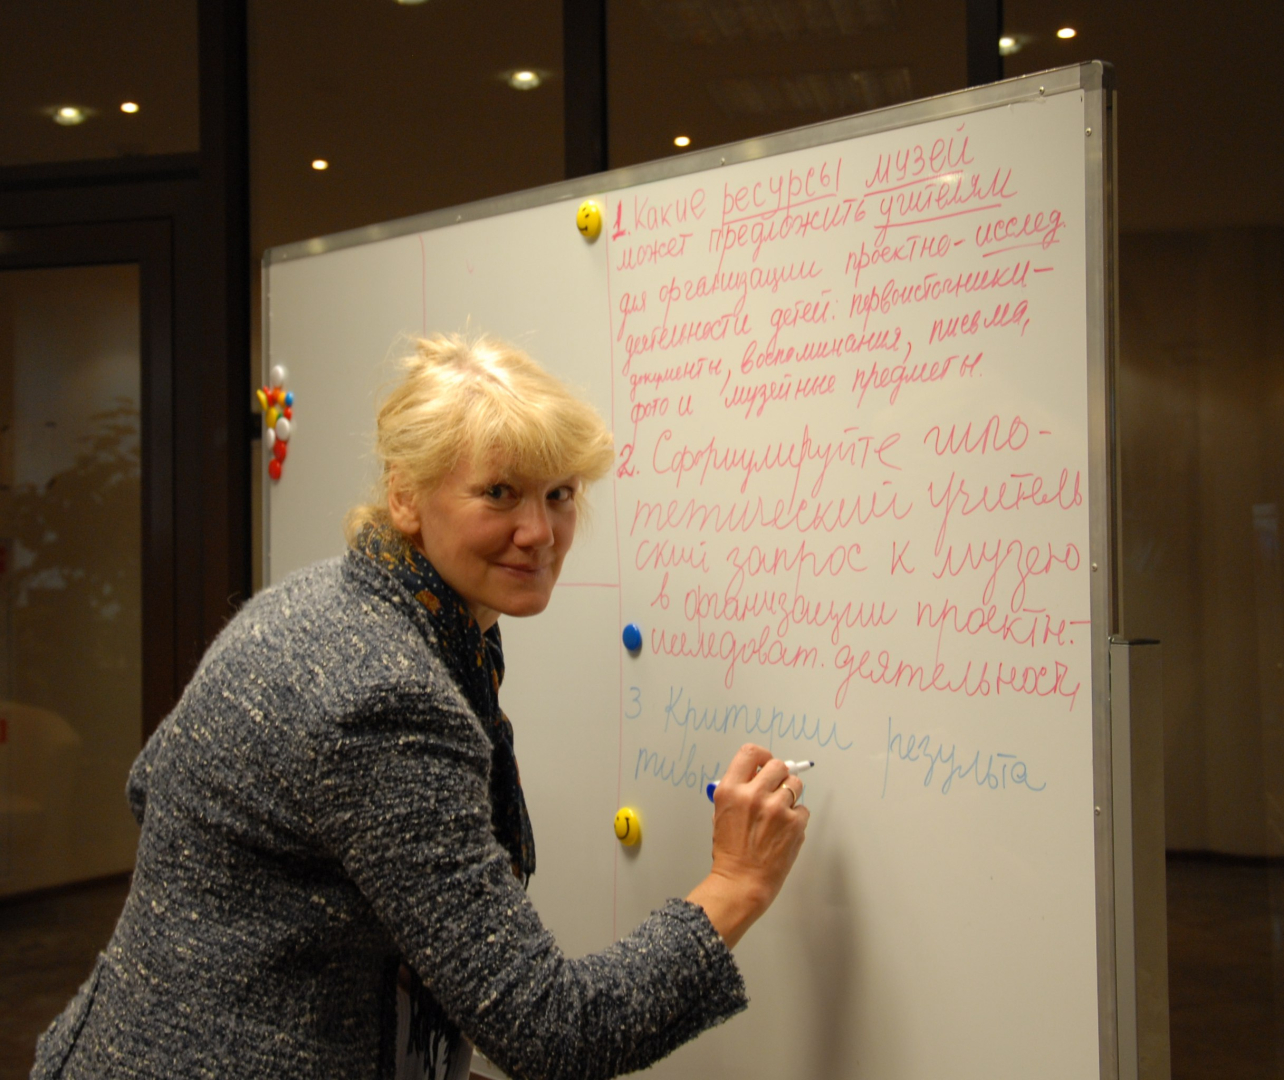 1. Какие ресурсы музей
может предложить учителям
для организации проектно-исслед.
деятельности детей: первоисточники-
документы, воспоминания, письма,
фото и музейные предметы.
2. Сформулируйте гипо-
тетический учитель
ский запрос к музею
в организации проектн.-
исследоват. деятельност,
3 Критерии результа
тивн